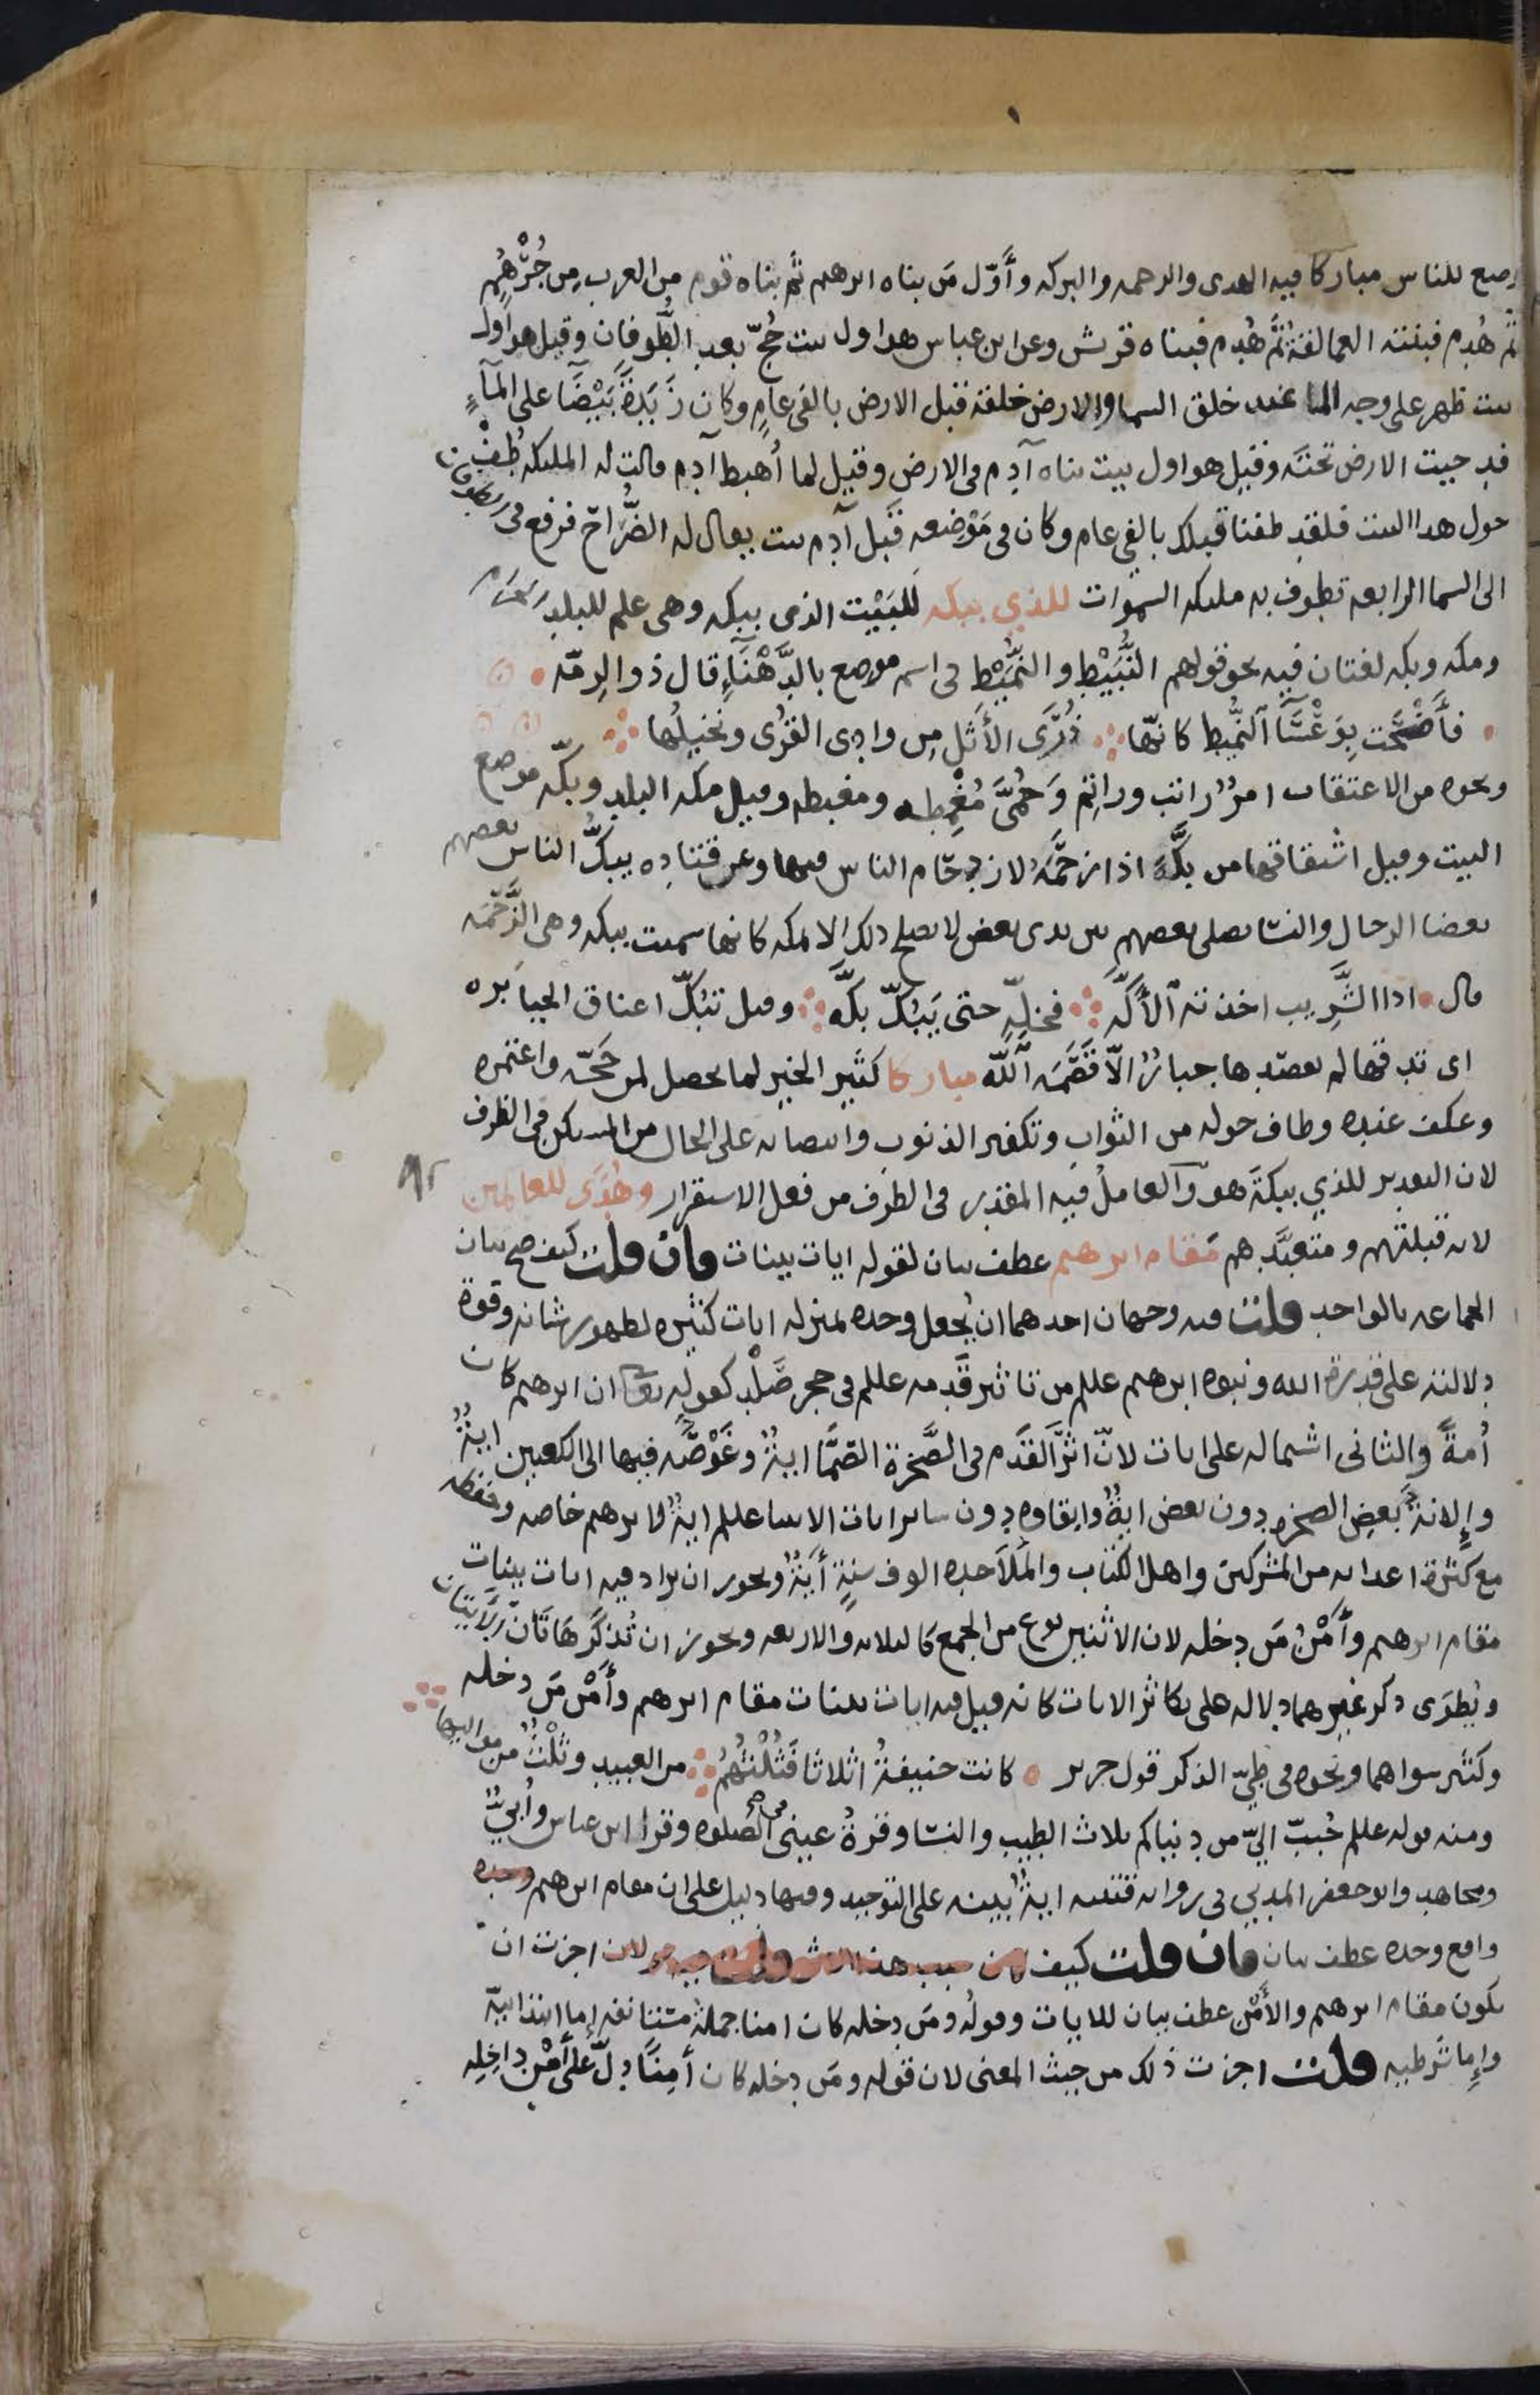 وضع للناس مباركا فيه الهدى والرحمه والبركه وأوّل مَن بناه ابرهيم ثم بناه قوم من العرب مِن جُرْهُم
ثم هُدِم فبنته العمالقة ثُمَّ هُدِم فبناه قريش وعن ابن عباس هو اول بيت حُجّ بعد الطُّوفان وقيل هو اول
بيت ظهر على وجه الما عند خلق السما والارض خلقه قبل الارض بالفى عامٍ وكان زَبَدَةً بَيْضَآ على المآءِ
فدحيت الارض تحتَه وقيل هو اول بيت بناه آدم فى الارض وقيل لما أُهبط آدم قالت له المليكه طُفْ
حول هدا البيت فلقد طفنا قبلك بالفى عام وكان فى مَوْضِعه قَبل آدم بيت يقال له الضُّراح فرفع فى الطوفان
الى السما الرابعه تطوف به مليكه السموات للذي ببكه لَلبَيْت الذى ببكه وهى علم للبلد الحرام
ومكه وبكه لغتان فيه نحو قولهم النُّبَيْط والنُّمَيْط فى اسم موضع بالدَّهْنَآءِ قال ذو الرمّه
فأَضْحَت بِوَعْسَآ النُّمَيط كانّها ذُرَى الأَثْلِ مِن وادى القُرى ونخيلُها
ونحوه من الاعتقاب امرٌ راتب وراتِم وَحُمَّىً مُغْمِطه ومغبطه وقيل مكه البلد وبكّه موضع
البيت وقيل اشتقاقها من بَكَّهَ اذا زحمَهُ لازدحام الناس فيها وعن قتاده يبُكُّ الناس بعضهم
بعضا الرجال والنسَا يصلى بعضهم بين يدى بعض لا يصلح ذلك الا بمكه كانها سميت ببكه وهى الزَّحْمَه
قال اذا الشَّرِيب اخذته الأَكَّه فخلِّهِ حتى يَبُكّ بَكَّه وقيل تبُكّ اعناق الجبابره
اى تدقها لم يقصدها جبارٌ الّا قَصَمَه اللّه مباركا كثَير الخير لما يحصل لمن حَجّه واعتمره
وعكف عنده وطاف حوله من الثواب وتكفير الذنوب وانتصابه على الحال من المستكن فى الظرف
لان التقدير للذي ببكةَ هو والعاملُ فيه المقدر فى الظرف من فعل الاستقرار وهُدَى للعالمين
لانه قبلتهم ومتعبَّدهم مَقام ابرهيم عطف بيان لقوله ايات بينات فان قلت كيف صح بيان
الجماعه بالواحد قلت فيه وجهان احدهما ان يُجعل وحده بمنزله ايات كثيره لظهور شانه وقوة
دلالته على قدرة الله ونبوه ابرهيم عللم من تاثير قَدمه عللم فى حجر صَلْد كقولِه تعا ان ابرهيم كان
أُمةً والثانى اشتماله على ايات لانّ اثرَ القَدَم فى الصَّخرة الصَمَّا ايةٌ وغَوْصَه فيها الى الكعبين ايةٌ
وإِلانة بعضِ الصخره دون بعض ايةٌ وابقاوه دون ساير ايات الانبيا عللم ايةٌ لابرهيم خاصه وحفظه
مع كثرة اعدايه من المشركين واهل الكتاب والمَلاحده الوف سَنةٍ أيَةٌ ويجوز ان يراد فيه ايات بينات
مقام ابرهيم وأَمْنُ مَن دخله لان الاثنين نوع من الجمع كالثلاثه والاربعه ويجوز ان تُذكَر هَاتَان الآيتان
ويُطوَى ذكر غيرهما دلاله على تكاثر الايات كانه قيل فيه ايات بينات مقام ابرهيم وأَمْن مَن دخله
وكثير سواهما ونحوه فى طيّ الذكر قول جرير كانت حنيفةُ اثلاثا فَثُلْثُهُمُ من العبيد وثُلْثٌ من مواليها
ومنه قوله عللم حُبب اليّ من دنياكم ثلاث الطيب والنسا وقرةُ عينى فى الصلوه وقرا ابن عباس وأُبيّ
ومجاهد وابو جعفر المدني فى روايه قتيبه ايةٌ بينه على التوحيد وفيها دليل على ان مقام ابرهيم وحده
واقع وحده عطف بيان فان قلت كيف اجزت ان
يكون مقام ابرهيم والأَمْن عطف بيان للايات وقولُه ومَن دخله كان امنا جملةٌ مستانفه إما ابتدائيّة
وإِما شرطيه قلت اجزت ذلك من حيث المعنى لان قوله ومَن دخله كان أمِنًا دلّ على أَمْنِ داخِلِه